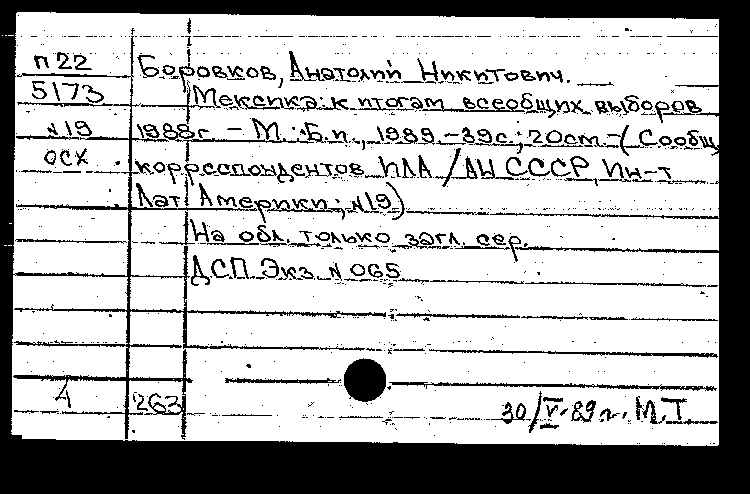 п22 Боровков, Анатолий Никитович.
5173 Мексика: к итогам всеобщих выборов
N19 1988г. – М.: Б.и., 1989.-39с.; 20см.-(Сообщ.
ОСХ корреспондентов ИЛА / АН СССР, Ин-т
Лат. Америки; N19)
На обл. только загл. сер.
ДСП Экз. N 065
4 263 30/V-89г. М.Т.